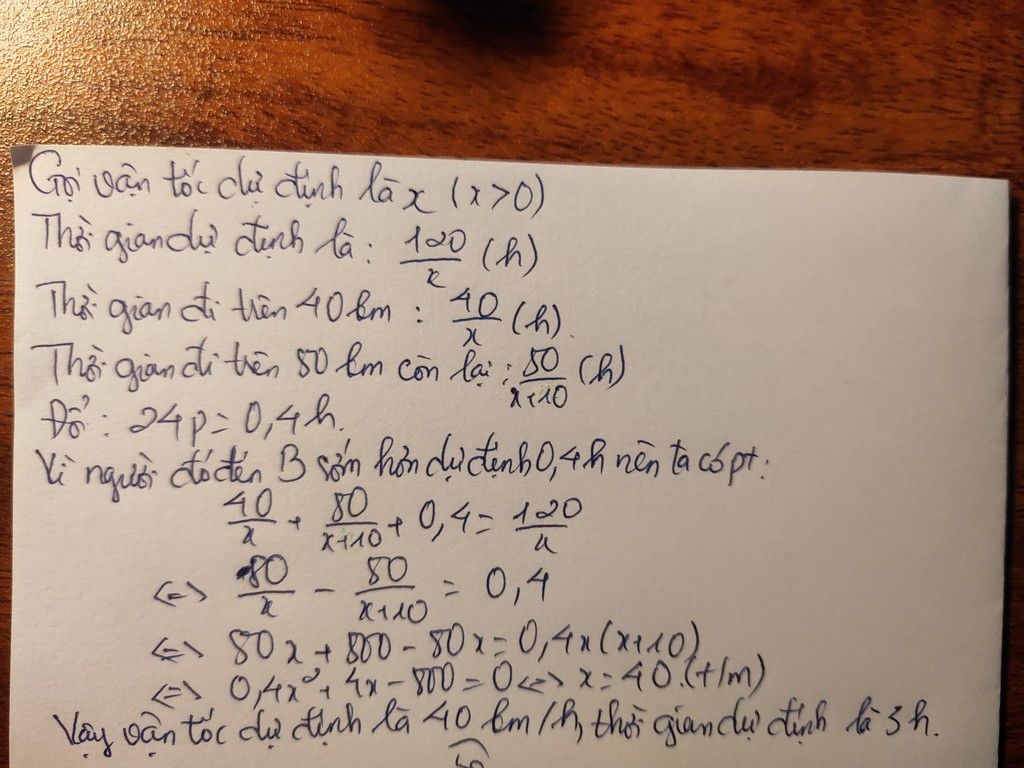 Gọi vận tốc dự định là x (x>0)
Thời gian dự định là: 120/x (h)
Thời gian đi trên 40 km : 40/x (h).
Thời gian đi trên 80 km còn lại: 80/(x+10) (h)
Đổi: 24p = 0,4h.
Vì người đó đến B sớm hơn dự định 0,4h nên ta có pt:
40/x + 80/(x+10) + 0,4 = 120/x
<=> 80/x - 80/(x+10) = 0,4
<=> 80x + 800 - 80x = 0,4x(x+10)
<=> 0,4x² + 4x - 800 = 0 <=> x = 40.(t/m)
Vậy vận tốc dự định là 40 km/h, thời gian dự định là 3h.